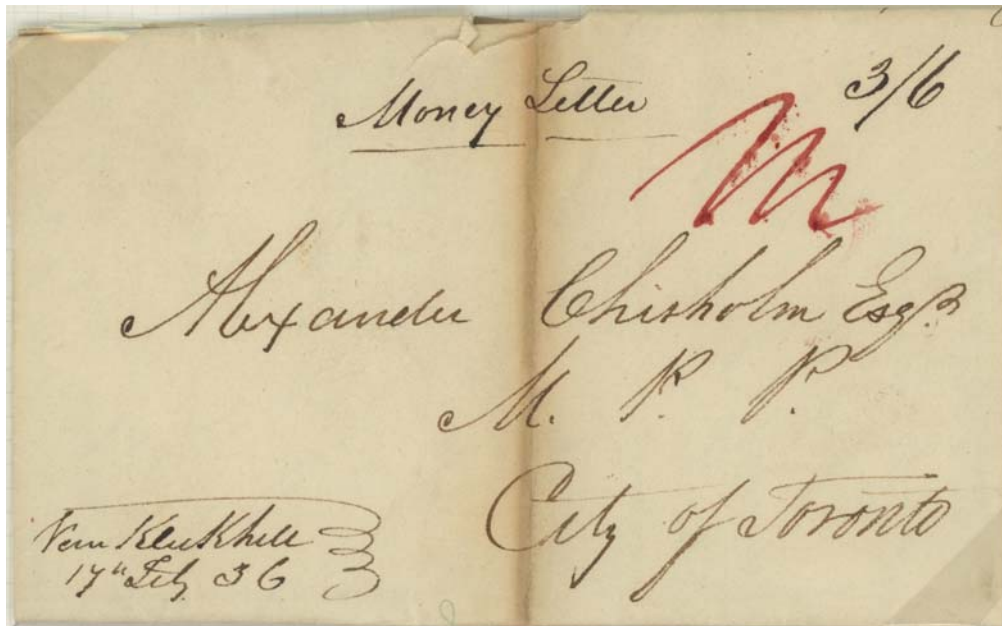 Money Letter 3/6
M
Alexander Chisholm Esqr.
M. P. P.
City of Toronto
Van Kleek hill
17th Feby. 36